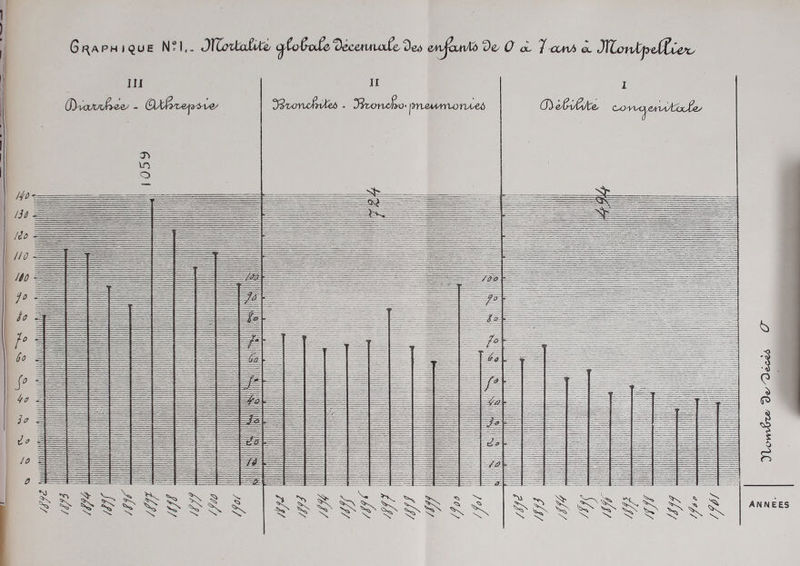 GRAPHIQUE N°1.- Mortalité globale Décennale Des enfants De 0 à 7 ans à Montpellier
III
II
I
Diarrhée - Athrepsie
Bronchites - Broncho-pneumonies
Débilité congénitale
1059
724
494
140
130
120
110
100
90
80
70
60
50
40
30
20
10
0
100
90
80
70
60
50
40
30
20
10
0
100
90
80
70
60
50
40
30
20
10
0
Nombre De Décès 0
1892 1893 1894 1895 1896 1897 1898 1899 1900 1901
1892 1893 1894 1895 1896 1897 1898 1899 1900 1901
1892 1893 1894 1895 1896 1897 1898 1899 1900 1901
ANNÉES